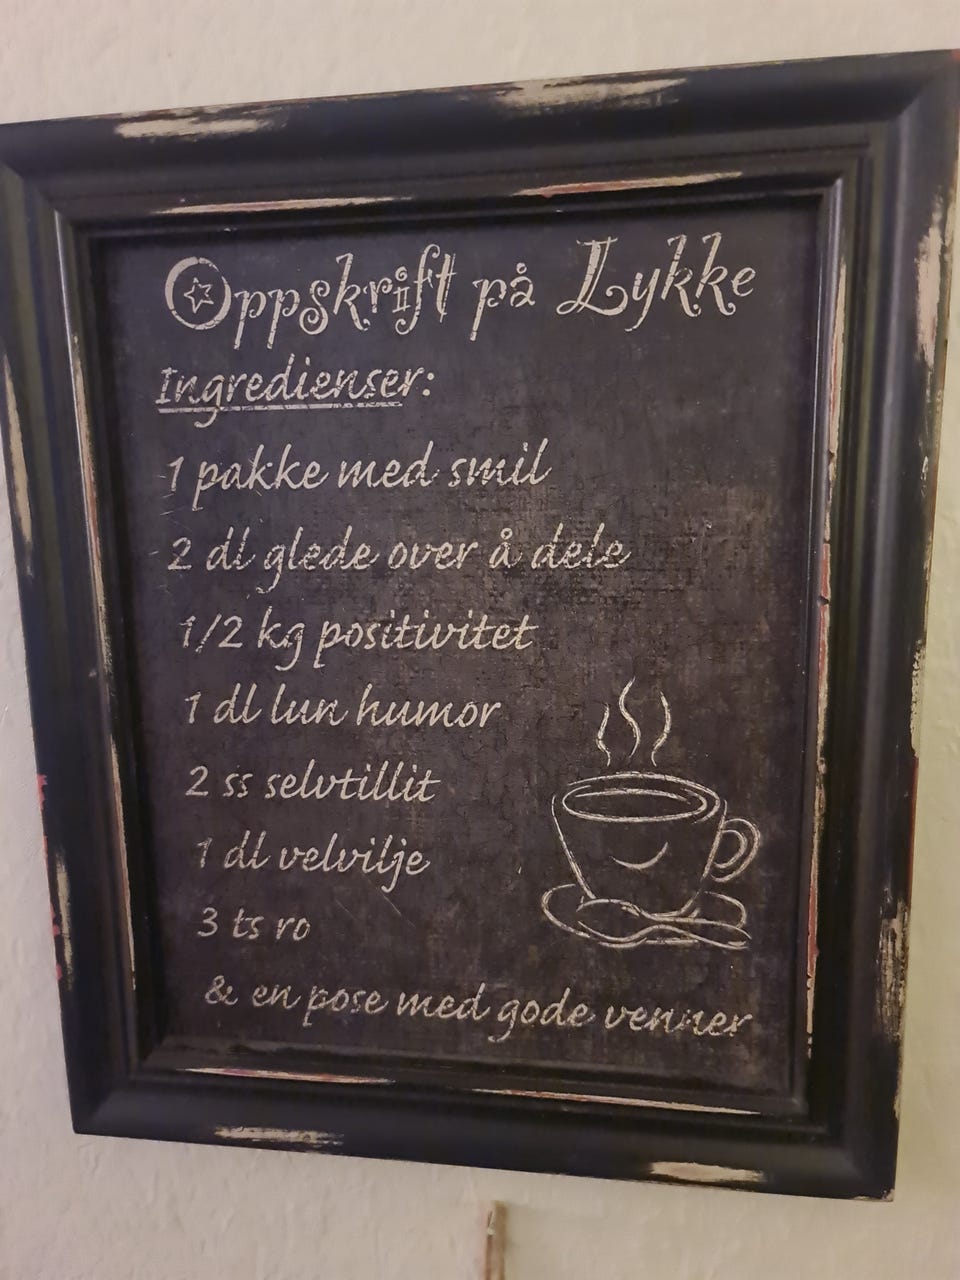 Oppskrift på Lykke
Ingredienser:
1 pakke med smil
2 dl glede over å dele
1/2 kg positivitet
1 dl lun humor
2 ss selvtillit
1 dl velvilje
3 ts ro
& en pose med gode venner